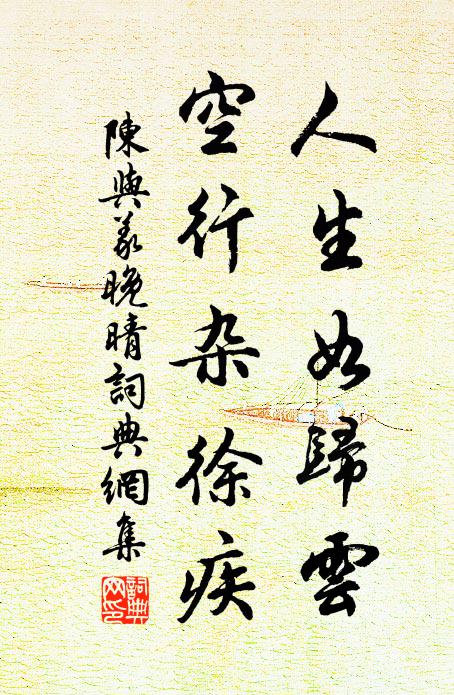 人生如歸雲
空行杂徐疾
陳與義晚晴詞典網集
詞典網印